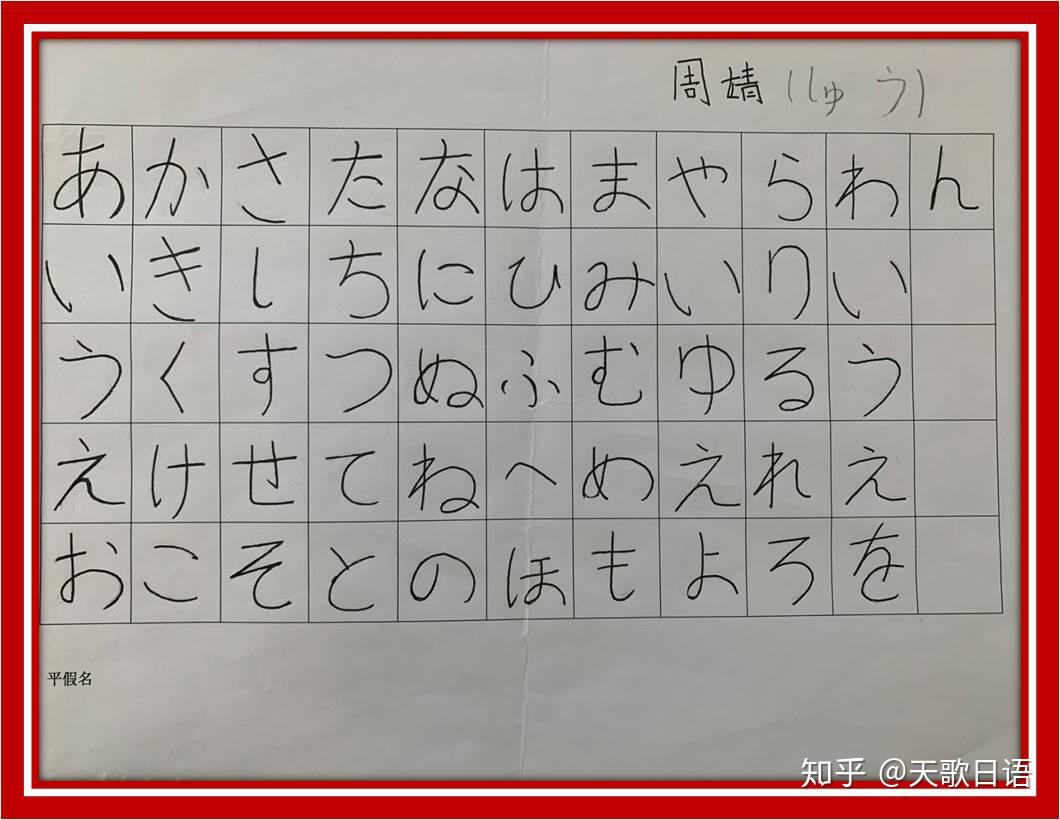 周婧(しゅう)
あ か さ た な は ま や ら わ ん
い き し ち に ひ み い り い
う く す つ ぬ ふ む ゆ る う
え け せ て ね へ め え れ え
お こ そ と の ほ も よ ろ を
平假名
知乎 @天歌日语